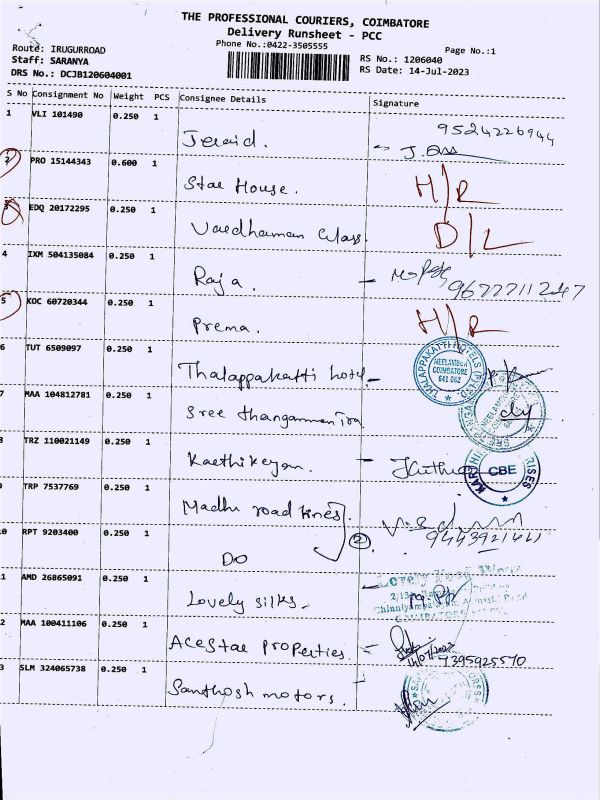 THE PROFESSIONAL COURIERS, COIMBATORE
Delivery Runsheet - PCC
Phone No.:0422-3505555
Page No.:1
Route: IRUGURROAD
Staff: SARANYA
DRS No.: DCJB120604001
RS No.: 1206040
RS Date: 14-Jul-2023
S No Consignment No Weight PCS Consignee Details Signature
1 VLI 101490 0.250 1
9524226944
Jeraid.
2 PRO 15144343 0.600 1
Star House. H/R
3 EDQ 20172295 0.250 1
Vardhaman Glass. D/L
4 IXM 504135084 0.250 1
Raja. 9677711247
5 KOC 60720344 0.250 1
Prema. H/R
6 TUT 6509097 0.250 1
Thalappakatti hotel
THALAPPAKATTI HOTELS (P)
NEELAMBUR
COIMBATORE
641 062
7 MAA 104812781 0.250 1
Sree
8 TRZ 110021149 0.250 1
Karthikeyan.
CBE
9 TRP 7537769 0.250 1
Madhu road lines
10 RPT 9203400 0.250 1
2
9443921441
DO
11 AMD 26865091 0.250 1
Lovely silks.
12 MAA 100411106 0.250 1
Acestar properties.
7395925570
13 SLM 324065738 0.250 1
Santhosh motors.